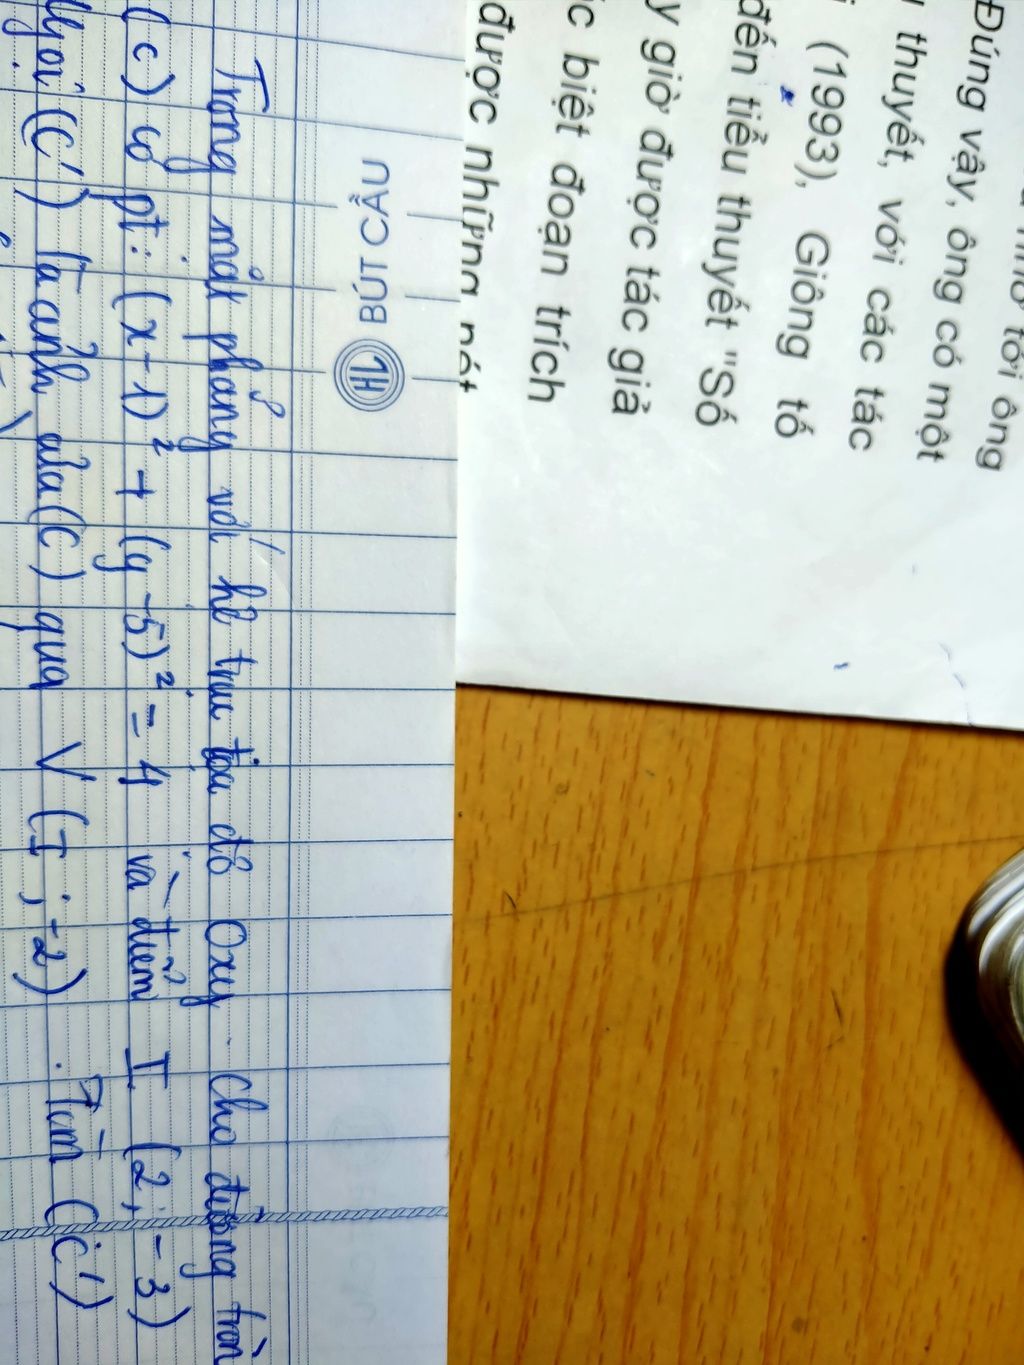 ông
Đúng vậy, ông có một
thuyết, với các tác
(1993), Giông tố
đến tiểu thuyết "Số
y giờ được tác giả
c biệt đoạn trích
được những nét
BÚT CẦU
Trong mặt phẳng với hệ trục tọa độ Oxy cho đường tròn
(C) có pt: (x-1)² + (y-5)² = 4 và điểm I (2; -3)
Gọi (C') là ảnh của (C) qua V (I; -2). Tìm (C')